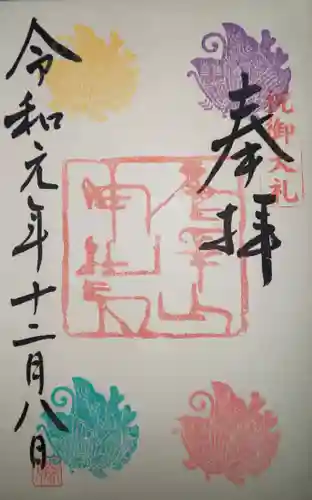 奉拝
祝御大礼
令和元年十二月八日